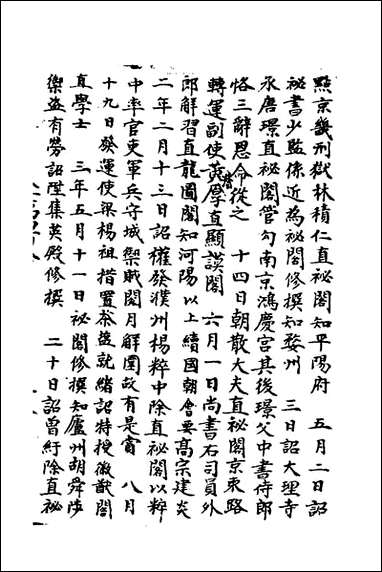 點京畿刑獄林積仁直秘閣知平陽府　五月二日詔
秘書少監係近為秘閣修撰知婺州　三日詔大理寺
丞唐璟直秘閣管勾南京鴻慶宮其後璟父中書侍郎
恪三辭恩命從之　十四日朝散大夫直秘閣京東路
轉運副使黃唐厚直顯謨閣　六月一日尚書右司員外
郎解習直龍圖閣知河陽以上續國朝會要高宗建炎
二年二月十三日詔權發濮州楊粹中除直秘閣以粹
中率官吏軍兵守城禦賊閱月解圍故有是賞　八月
十九日發運使梁楊祖措置茶鹽就緒詔特授徽猷閣
直學士　三年五月十一日秘閣修撰知廬州胡舜陟
禦盜有勞詔陞集英殿修撰　二十日詔曾紆除直秘